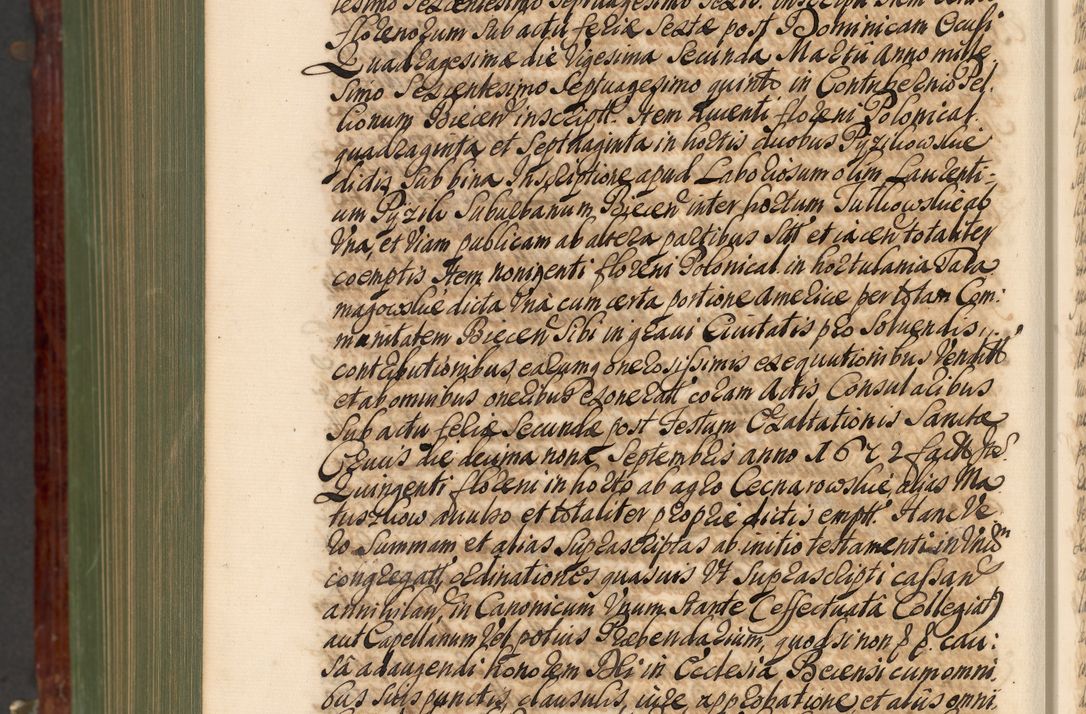 florenorum sub actu feriæ Sextæ post Dominicam Oculi
Quadragesimæ die Vigesima Secunda Martii Anno mille
simo Sexcentesimo Septuagesimo quinto in Contubernio Pel.
lionum Biecen inscript. Item ducenti floreni Polonical.
quadraginta et Septuaginta in hortis duobus Pyziliowskie
dictis sub bina Inscriptione apud Laboriosum olim Laurenti-
um Pyzik Suburbanum Biecen inter hortum Tulliowskie ab
Vna, et Viam publicam ab altera partibus Sitt et iacen totaliter
coemptis Item nongenti floreni Polonical. in hortulania Tara
magowskie dicta Vna cum certa portione Americæ per totam Com:
munitatem Biecen Sibi in gravi Civitatis pro Solvendis
contributionibus, earumq onerosissimis exequutionibus Venditt
et ab omnibus oneribus exonerat coram Actis Consularibus
Sub actu feriæ Secundæ post Festum Exaltationis Sanctæ
Crucis die decima nona Septembris anno 1672
Quingenti floreni in horto ab agro Cecnarowskie, alias Ma
tuszkiow avulso et totaliter proprie dictis empt. Hanc Ve
ro Summam et alias Suprascriptas ab initio testamenti in Vnum
congregatt, ordinationes quasvis Vt Suprascripti cassan
annihilan, in Canonicum Vnum Stante (effectuatâ Collegiat)
aut Capellanum Vel potius Præbendarium, quod si non
sâ adaugendi honorem Dei in Ecclesia Becensi cum omni
bus suis punctis, clausulis, iure approbatione, et aliis omni